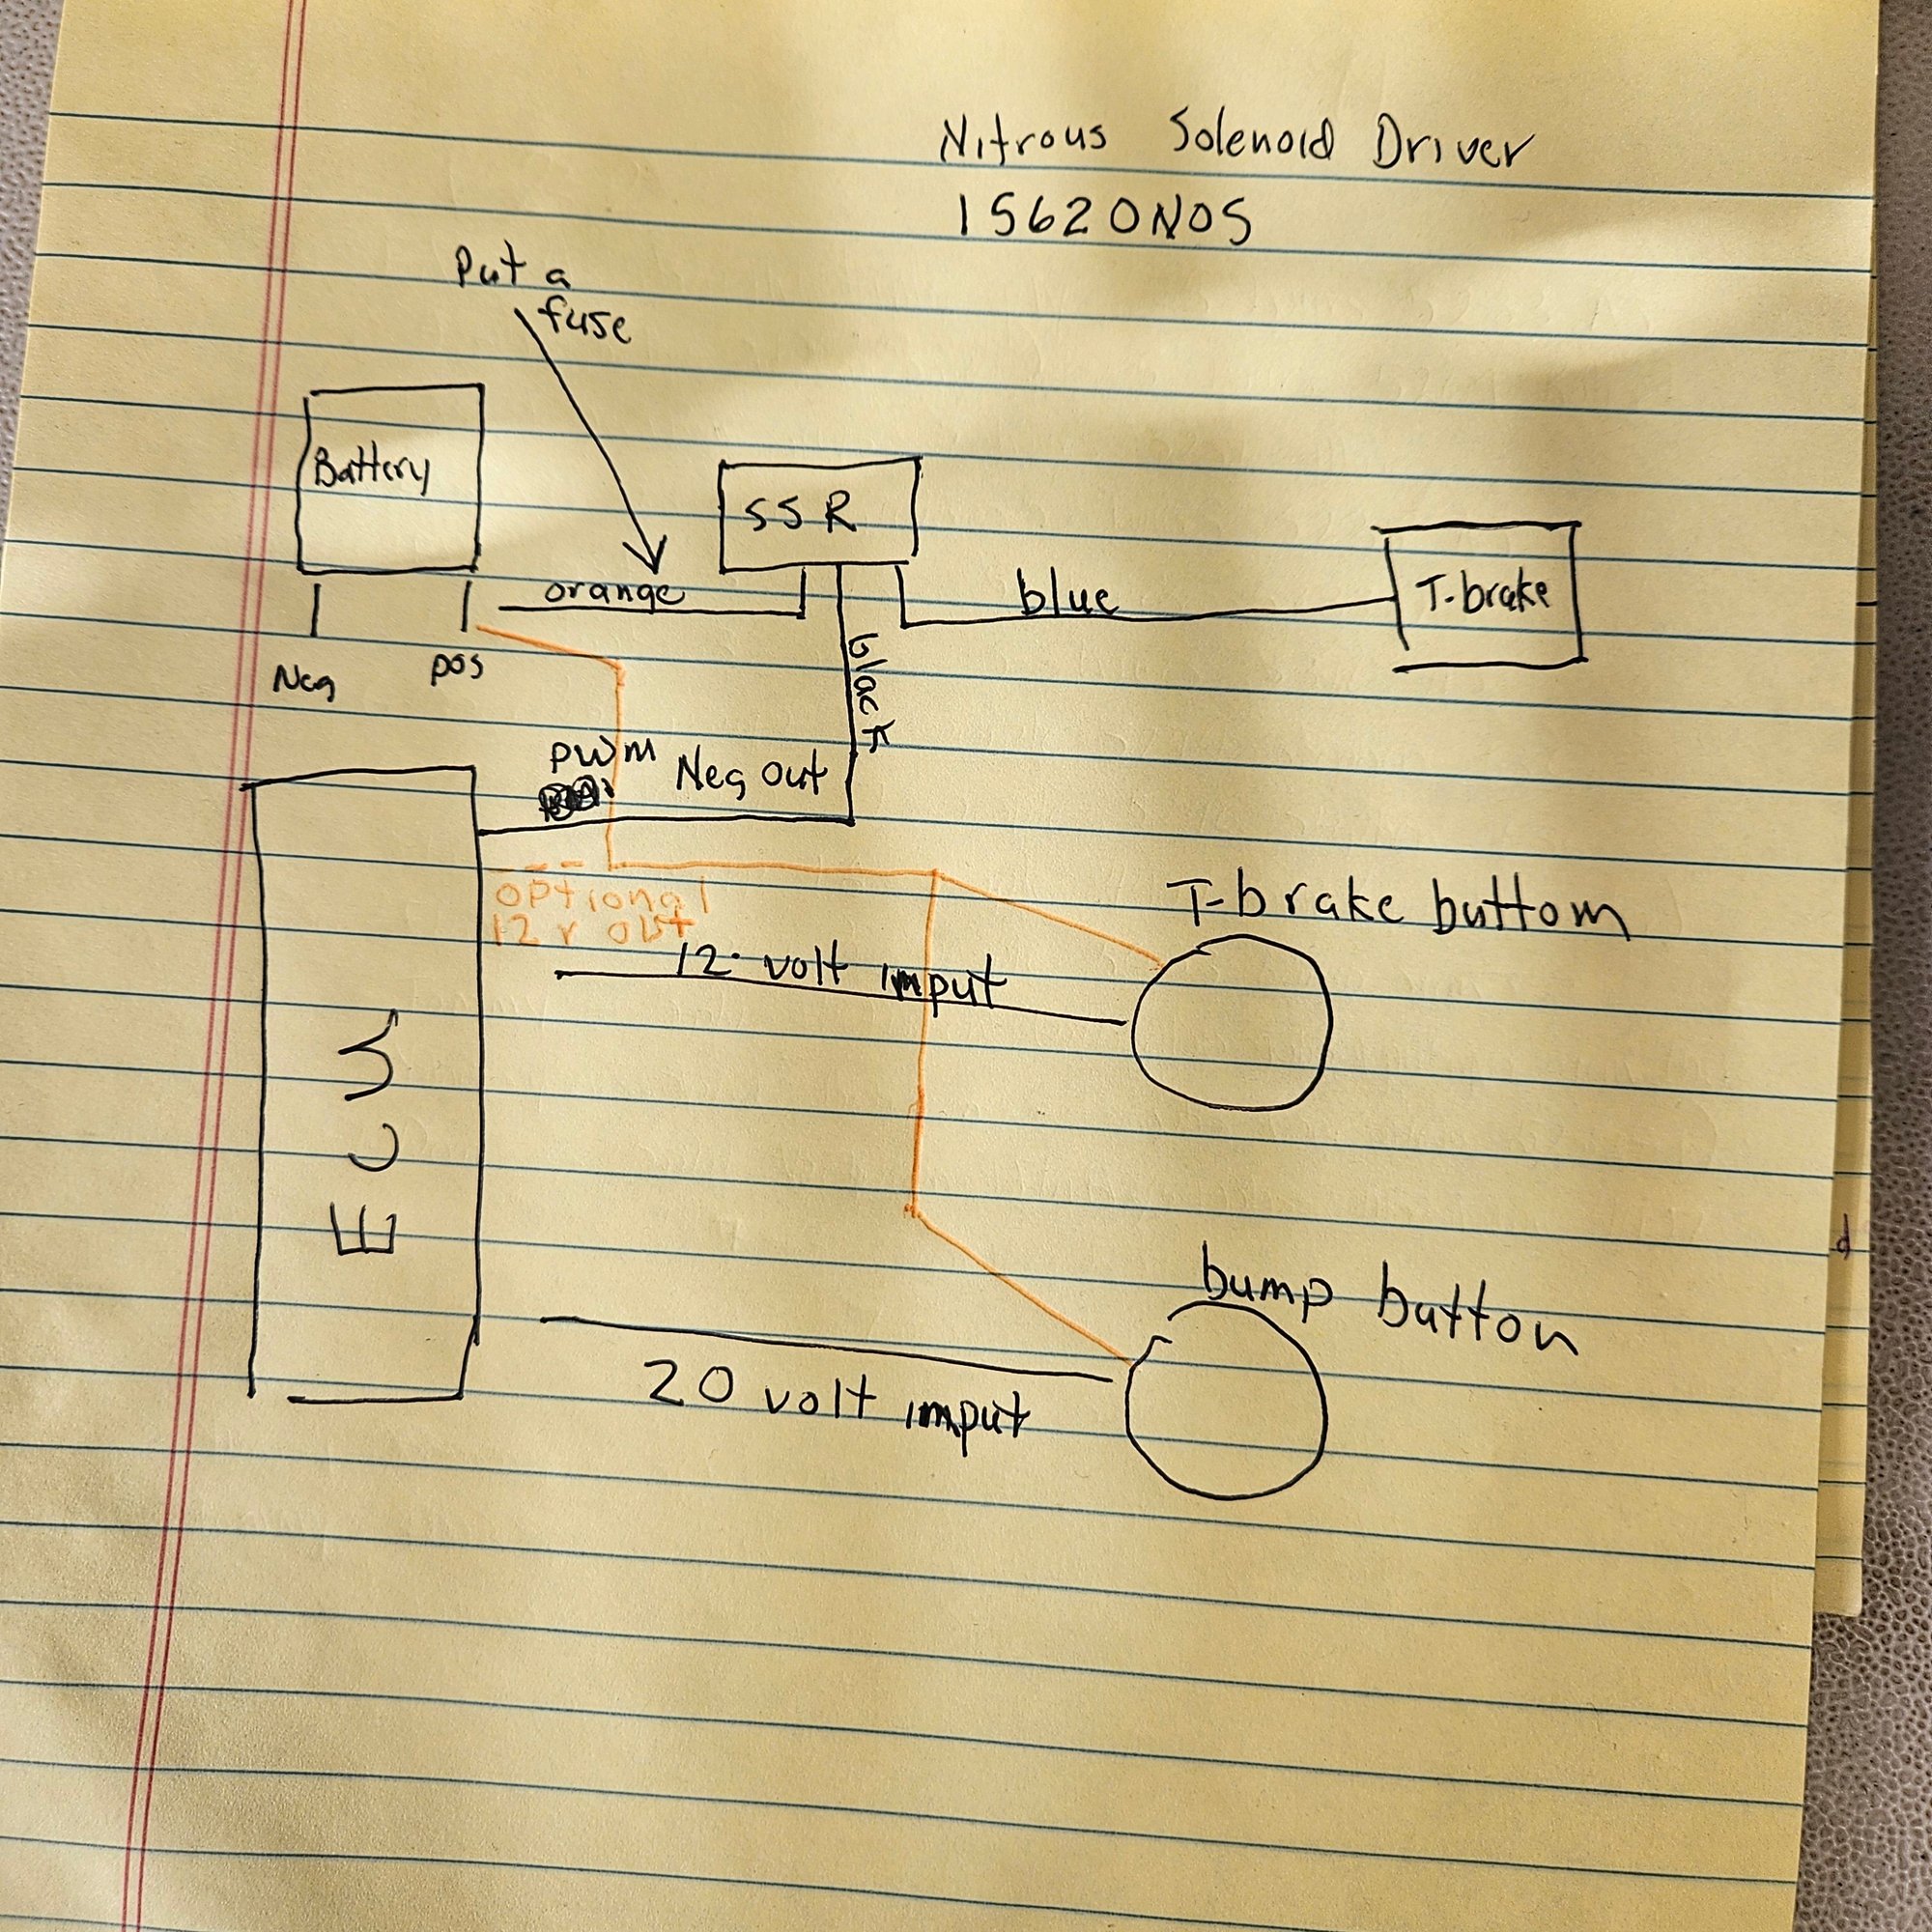 Nitrous Solenoid Driver
15620NOS
Put a
fuse
Battery
SSR
orange
blue
T-brake
Neg
pos
black
pwm
Neg out
optional
12 v out
T-brake buttom
12 volt imput
ECM
bump button
20 volt imput
d